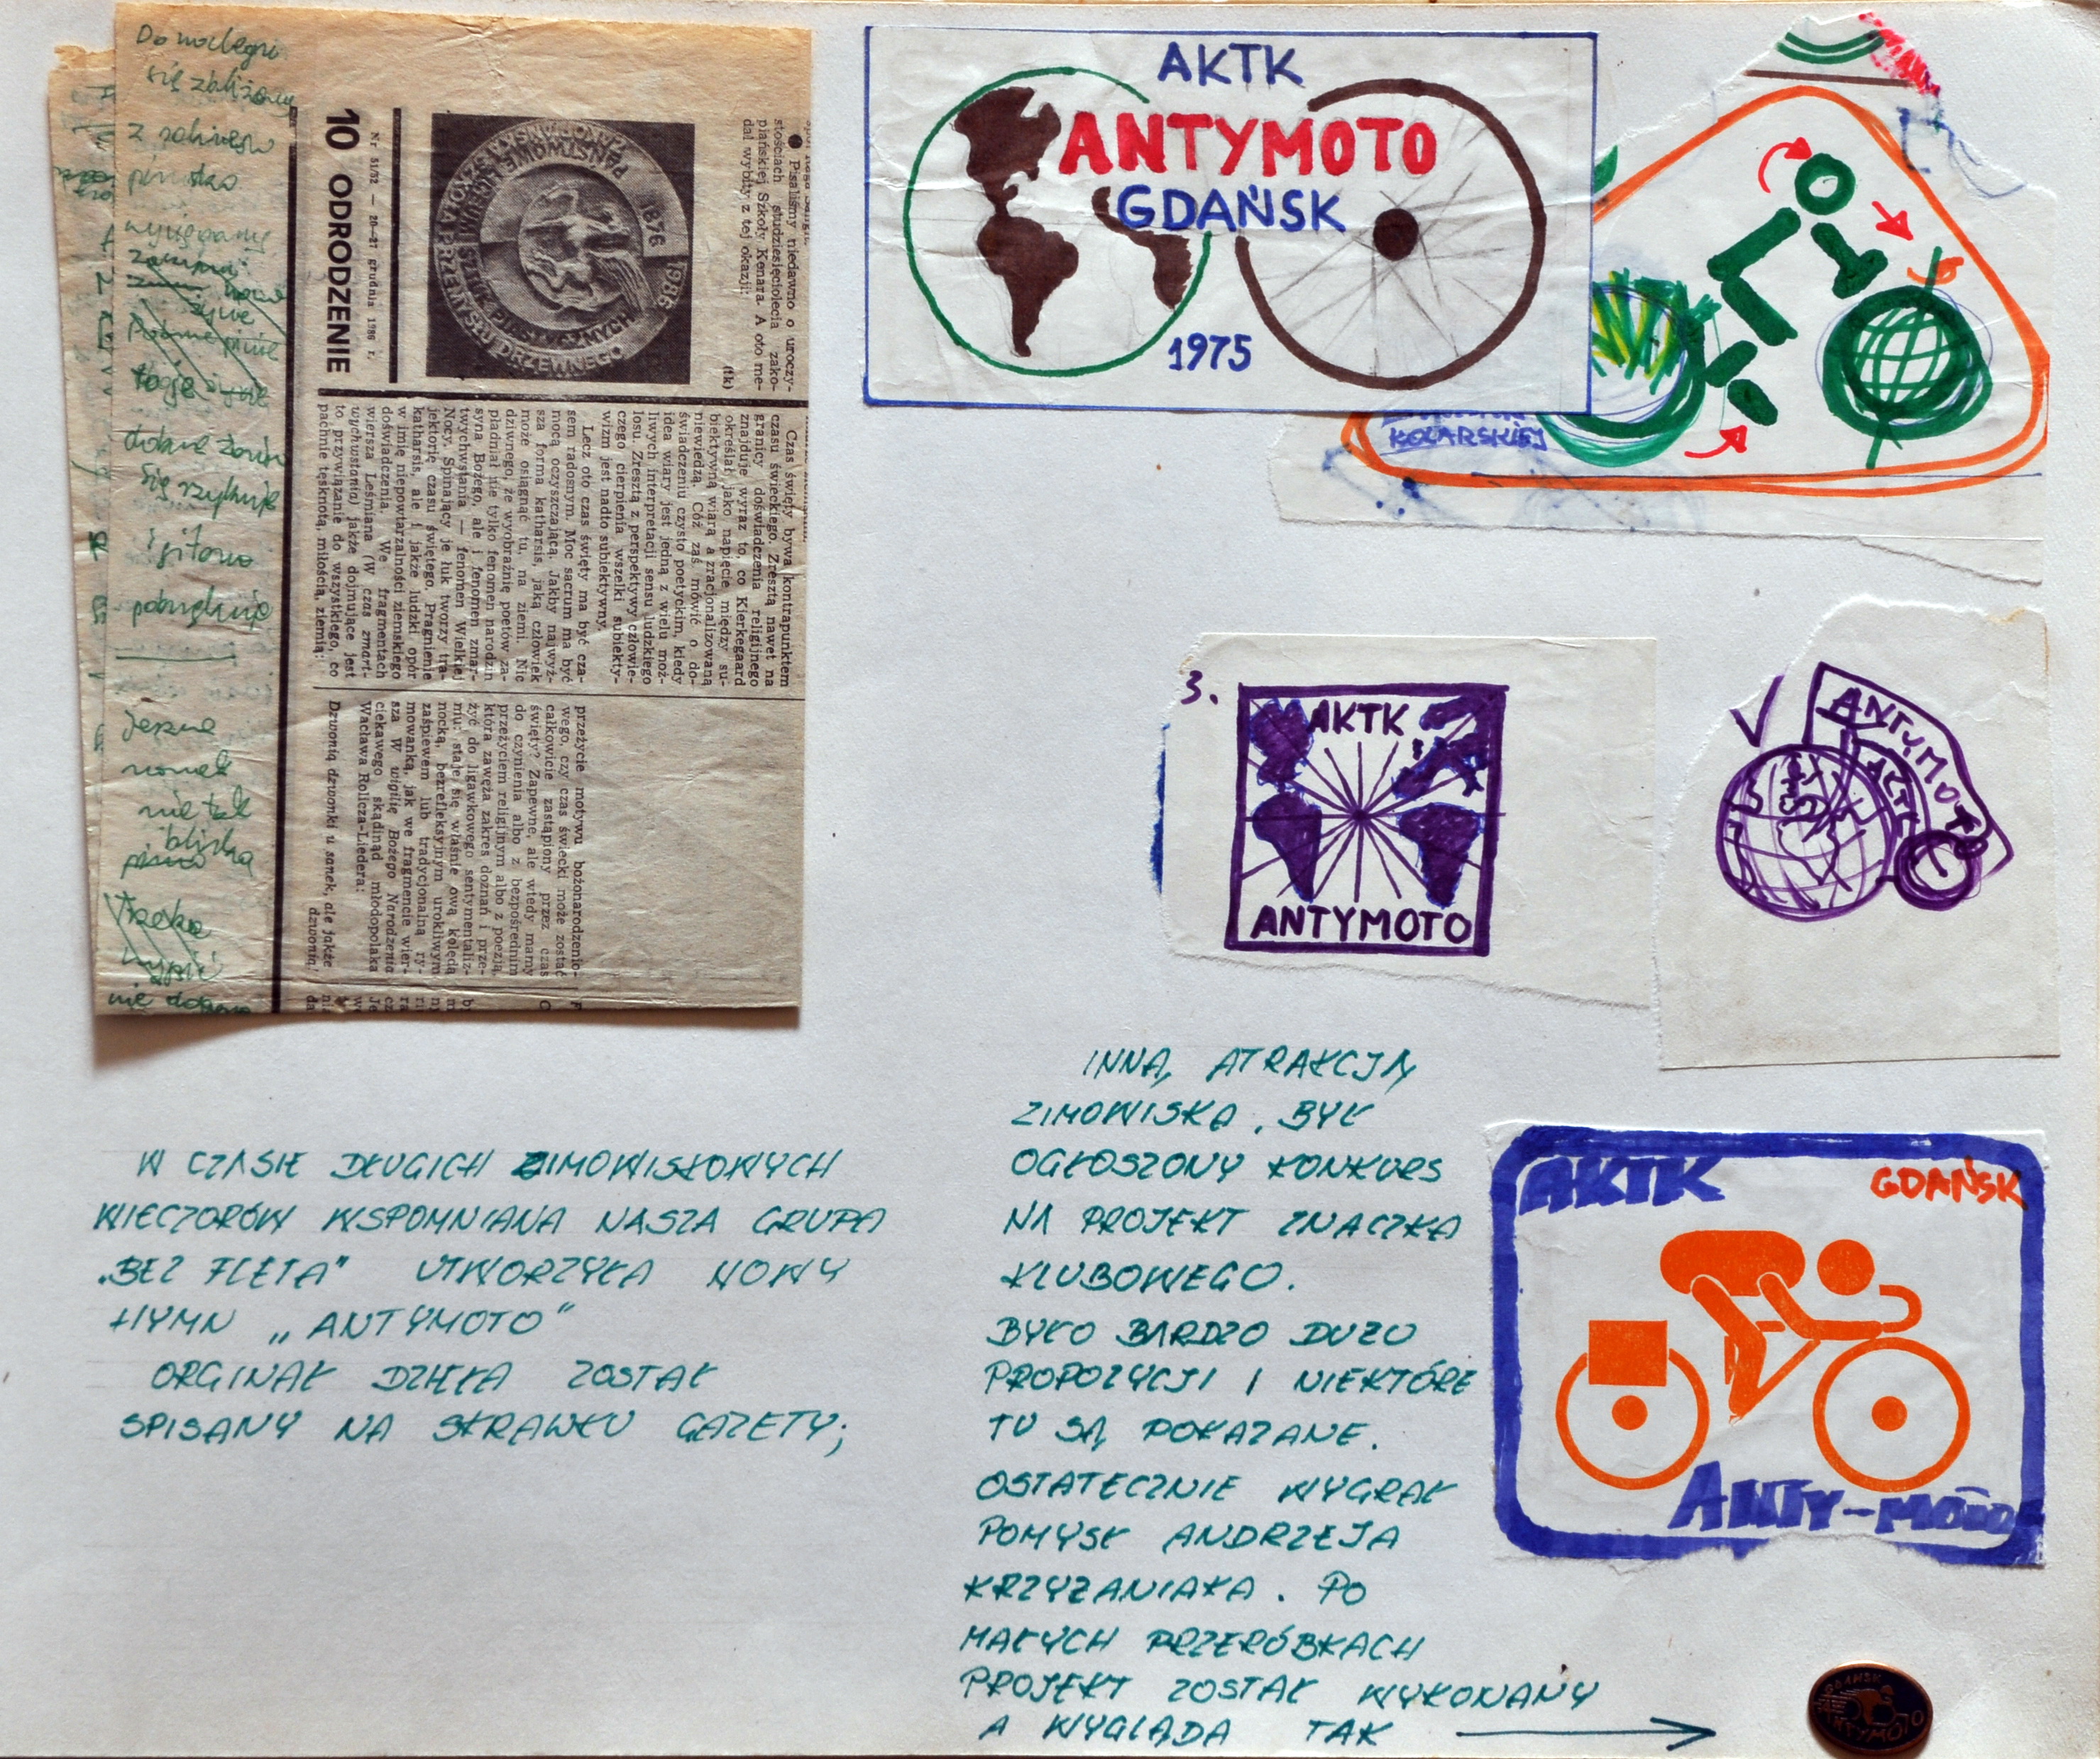 Do noclegu
się zbliżamy
z
wyciągamy
dobrze
się
i gitowo
pobrykuje
Jeszcze
nie tak
blisko
nie
10 ODRODZENIE
Nr 51/52 — 20—27 grudnia 1986 r.
PAŃSTWOWE LICEUM SZTUK PLASTYCZNYCH
1876 1986
● Pisaliśmy niedawno o uroczy-
stościach studziesięciolecia zako-
piańskiej Szkoły Kenara. A oto me-
dal wybity z tej okazji:
(tk)
Czas święty bywa kontrapunktem
czasu świeckiego. Zresztą nawet na
granicy doświadczenia religijnego
znajduje wyraz to, co Kierkegaard
określał jako napięcie między su-
biektywną wiarą a zracjonalizowaną
niewiedzą. Cóż zaś mówić o do-
świadczeniu czysto poetyckim, kiedy
idea wiary jest jedną z wielu moż-
liwych interpretacji sensu ludzkiego
losu. Zresztą z perspektywy człowie-
czego cierpienia wszelki subiekty-
wizm jest nadto subiektywny.
Lecz oto czas święty ma być cza-
sem radosnym. Moc sacrum ma być
mocą oczyszczającą. Jakby najwyż-
sza forma katharsis, jaką człowiek
może osiągnąć tu, na ziemi. Nic
dziwnego, że wyobraźnię poetów za-
pładniał nie tylko fenomen narodzin
syna Bożego, ale i fenomen zmar-
twychwstania — fenomen Wielkiej
Nocy. Spinający je łuk tworzy tra-
jektorię czasu świętego. Pragnienie
katharsis, ale i jakże ludzki opór
w imię niepowtarzalności ziemskiego
doświadczenia. We fragmentach
wiersza Leśmiana (W czas zmart-
wychwstania) jakże dojmujące jest
to przywiązanie do wszystkiego, co
pachnie tęsknotą, miłością, ziemią:
przeżycie motywu bożonarodzenio-
wego, czy czas świecki może zostać
całkowicie zastąpiony przez czas
święty? Zapewne, ale wtedy mamy
do czynienia albo z bezpośrednim
przeżyciem religijnym albo z poezją,
która zawęża zakres doznań i prze-
żyć do ligawkowego sentymentaliz-
mu: staje się właśnie ową kolędą
nocką, bezrefleksyjnym urokliwym
zaśpiewem lub tradycjonalną ry-
mowanką, jak we fragmencie wier-
sza W wigilię Bożego Narodzenia
ciekawego skądinąd młodopolaka
Wacława Rolicza-Liedera:
Dzwonią dzwonki u sanek, ale jakże
dzwonią!
AKTK
ANTYMOTO
GDAŃSK
1975
KOLARSKIEJ
3.
AKTK
ANTYMOTO
ANTYMOTO
AKTK
W CZASIE DŁUGICH ZIMOWISKOWYCH
WIECZORÓW WSPOMNIANA NASZA GRUPA
„BEZ FLETA" UTWORZYŁA NOWY
HYMN „ANTYMOTO"
ORGINAŁ DZIEŁA ZOSTAŁ
SPISANY NA SKRAWKU GAZETY;
INNĄ ATRAKCJĄ
ZIMOWISKA, BYŁ
OGŁOSZONY KONKURS
NA PROJEKT ZNACZKA
KLUBOWEGO.
BYŁO BARDZO DUŻO
PROPOZYCJI I NIEKTÓRE
TU SĄ POKAZANE.
OSTATECZNIE WYGRAŁ
POMYSŁ ANDRZEJA
KRZYŻANIAKA. PO
MAŁYCH PRZERÓBKACH
PROJEKT ZOSTAŁ WYKONANY
A WYGLĄDA TAK
AKTK GDAŃSK
ANTY-MOTO
GDAŃSK
ANTYMOTO